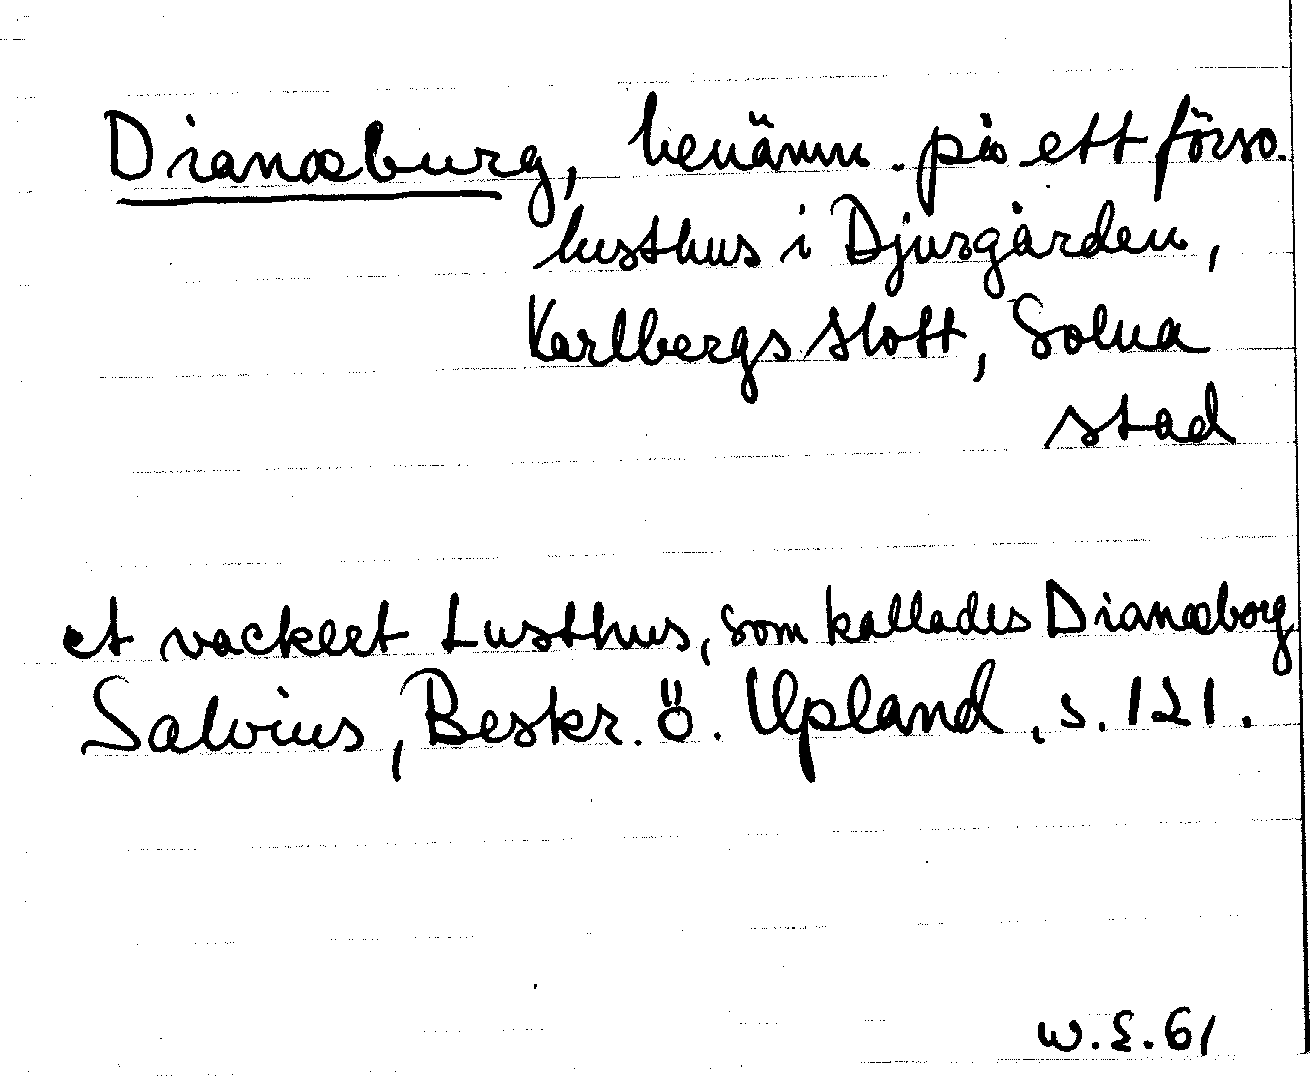 Dianæburg, benämn. på ett försv.
lusthus i Djurgården,
Karlbergs slott, Solna
stad
et vackert Lusthus, som kallades Dianæborg
Salvius, Beskr. ö. Upland, s. 121.
W.E. 61